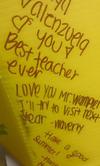 Valenzuela
♡s you
Best teacher
ever
LOVE YOU Mr.
I'll try to visit next
year -Waverly
Have a good
summer!